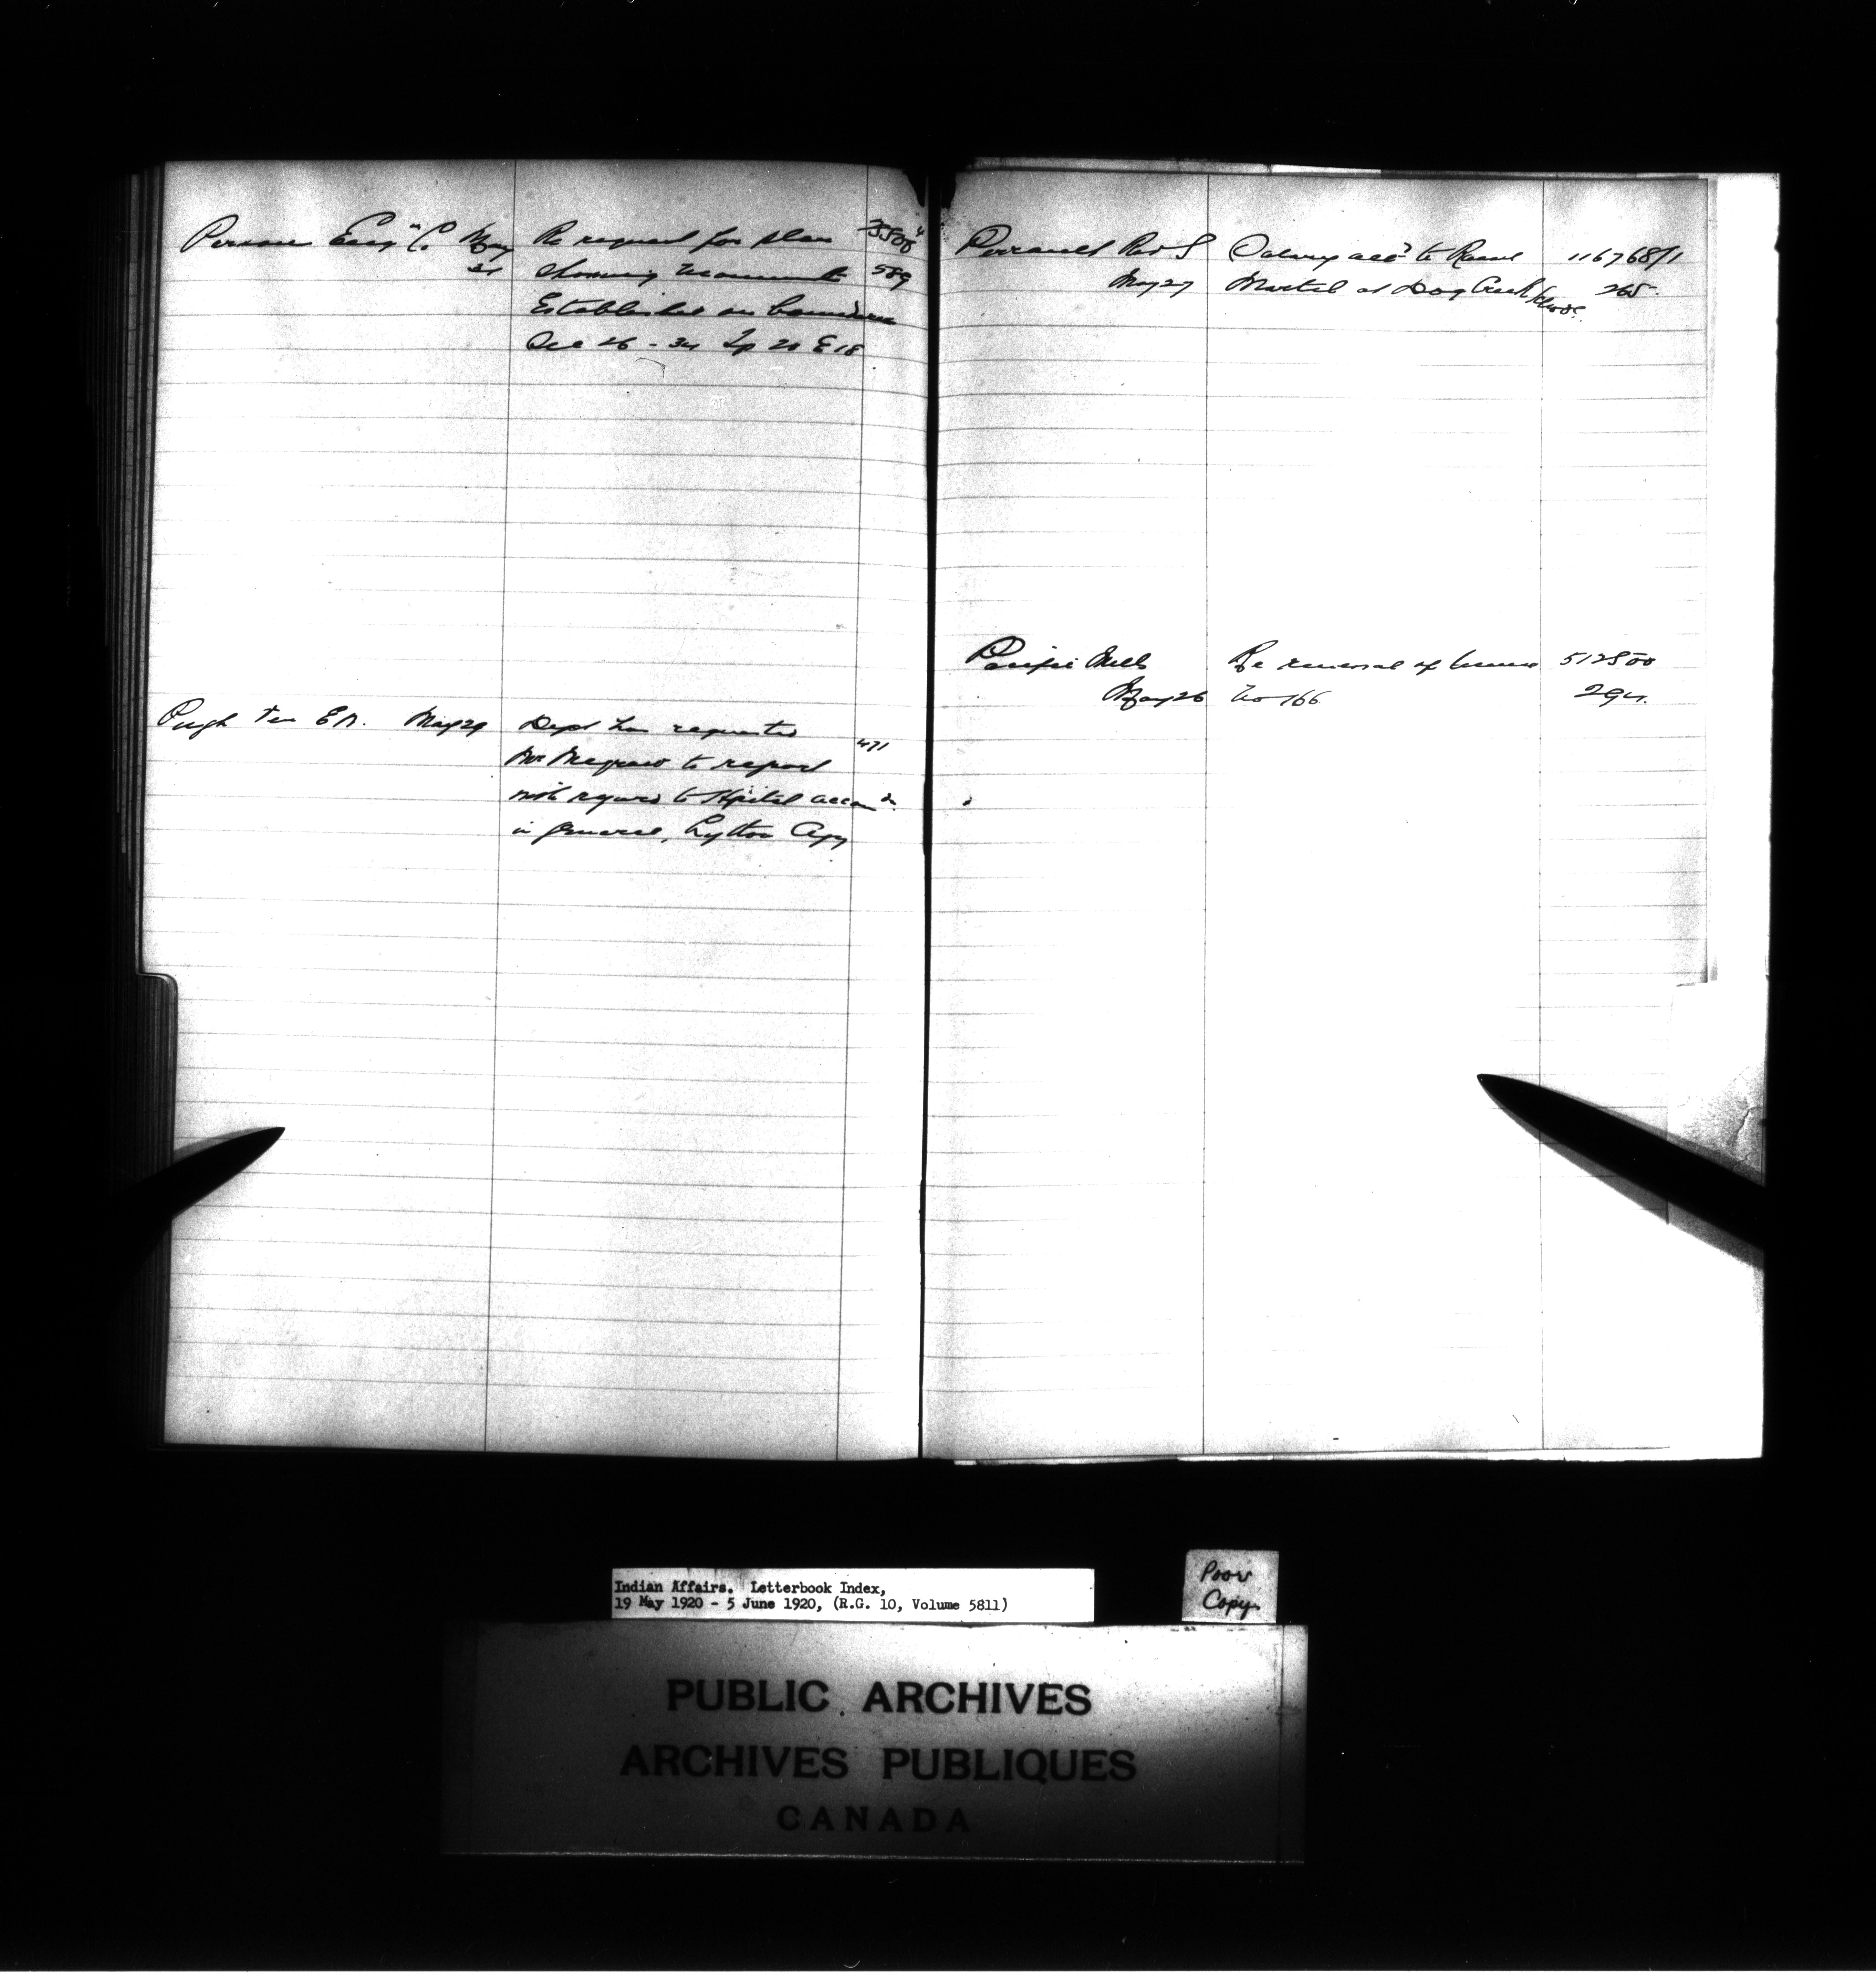 Pearson Eng'g Co May
31
Re request for plan
showing monuments
Established on boundaries
Sec 26 - 34 Tp 20 E 18
589
Pugh Ven E.W. May 29
Dept has requested
Mr Megraw to report
with regard to Hpital accom'dn
in general, Lytton Agcy
471
Perrault Rev S
May 27
Salary acct to
Martel at Dog Creek School
116768/1
265.
Pacific Mills
May 26
Re renewal of license
No 166
512500
294.
Indian Affairs. Letterbook Index,
19 May 1920 - 5 June 1920, (R.G. 10, Volume 5811)
Poor
Copy
PUBLIC ARCHIVES
ARCHIVES PUBLIQUES
CANADA